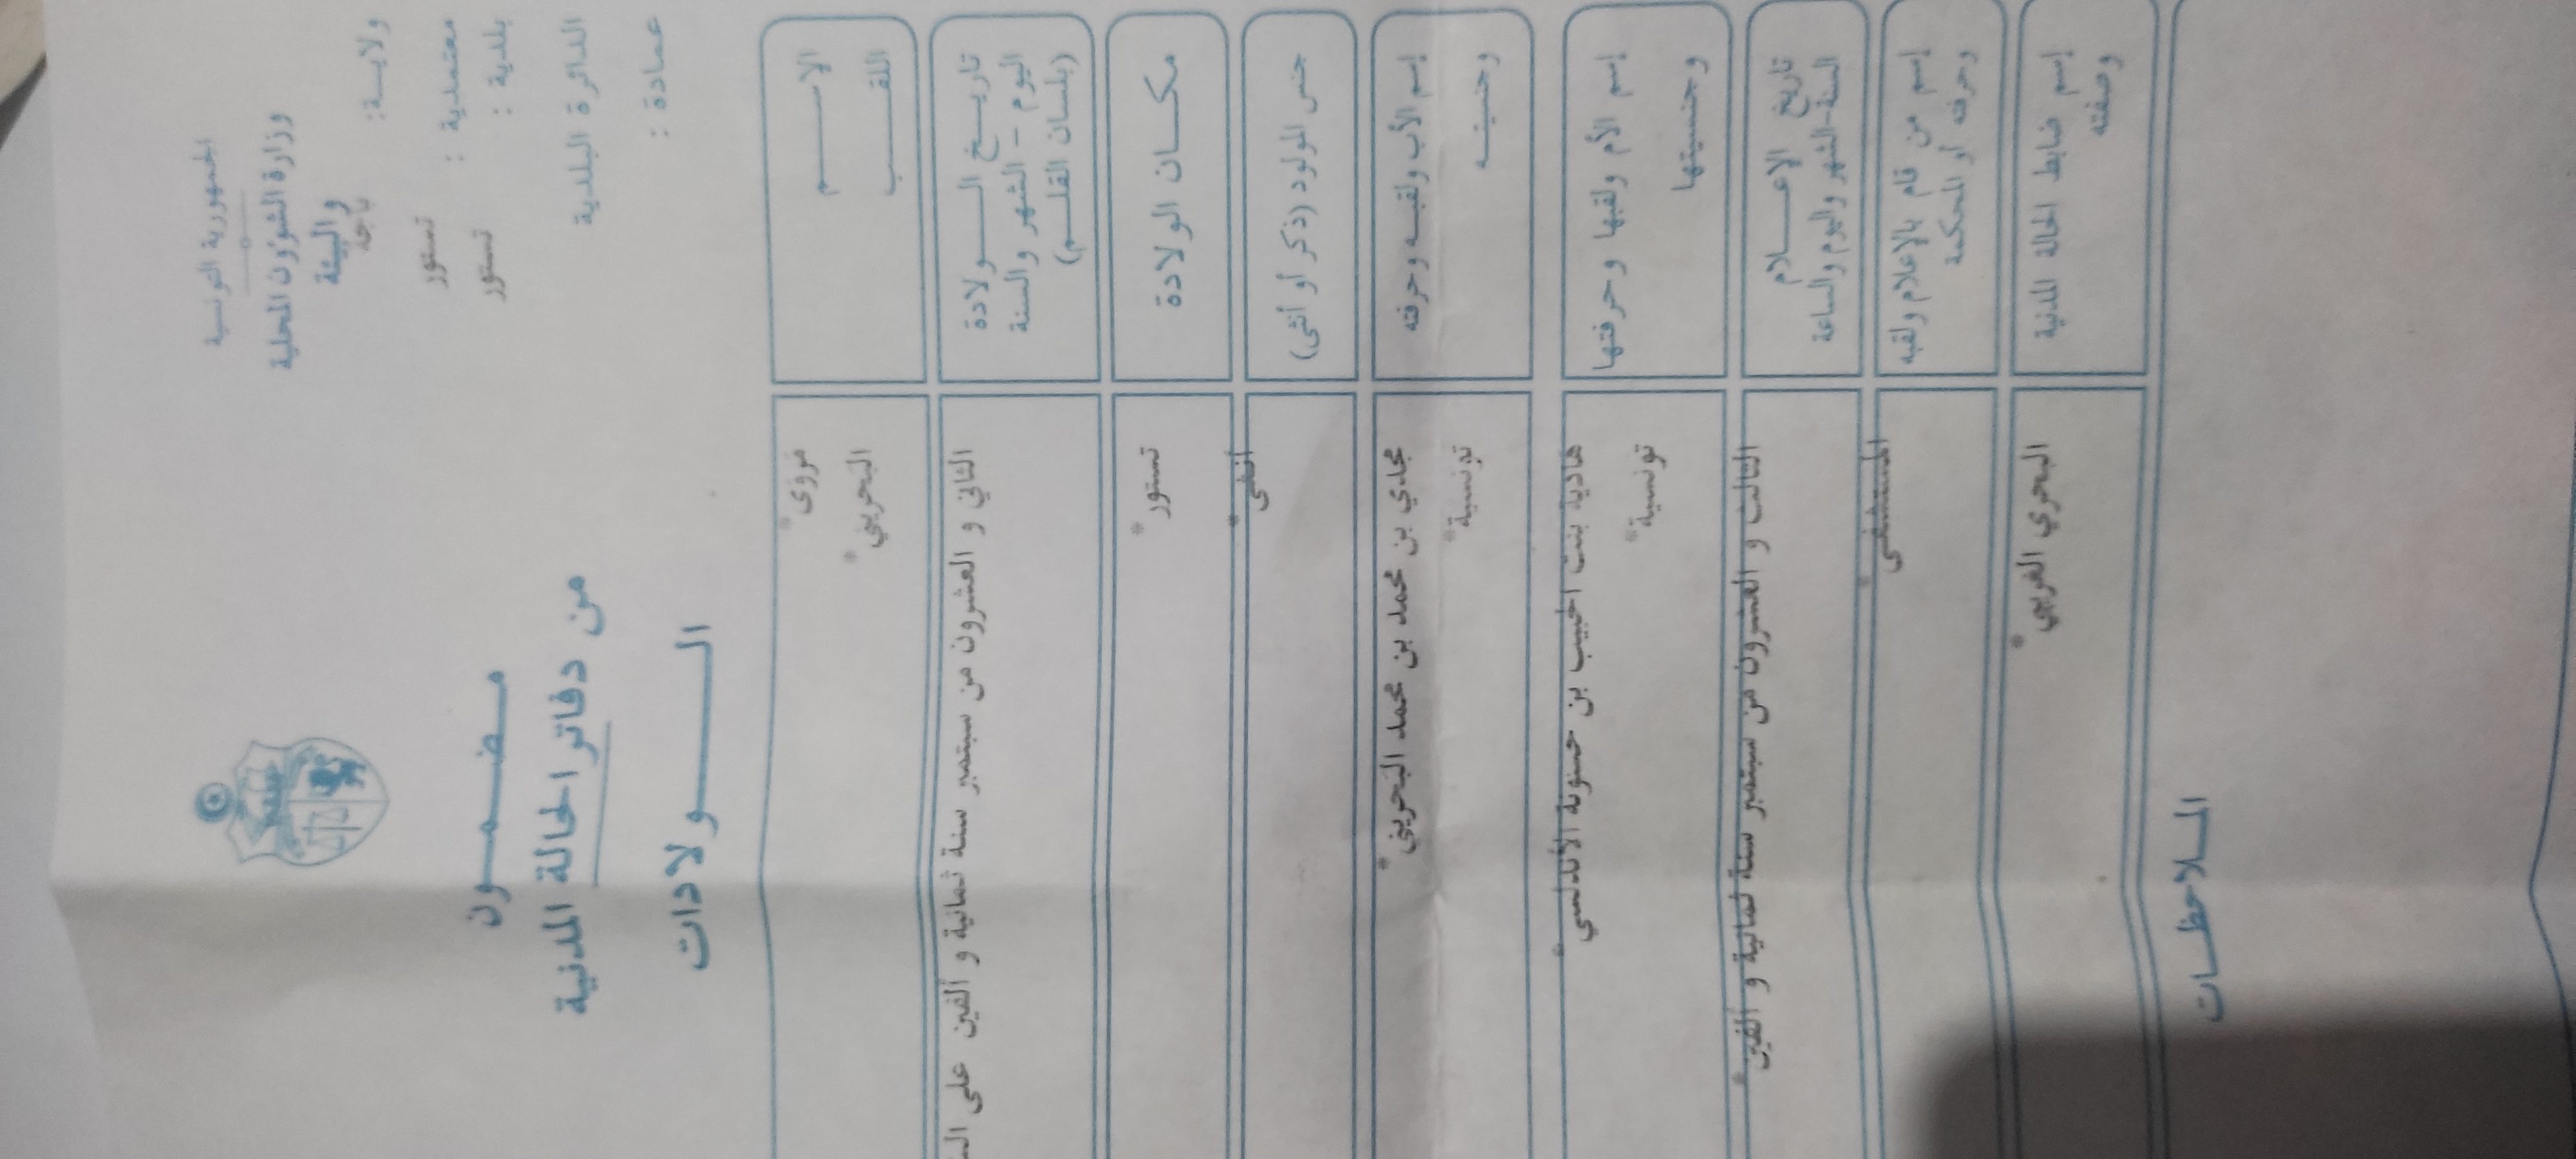 الجمهورية التونسية
وزارة الشؤون المحلية
والبيئة
ولاية: باجة
معتمدية : تستور
بلدية : تستور
الدائرة البلدية
عمادة :
مضمون
من دفاتر الحالة المدنية
الولادات
الاسم
مروى*
اللقب
البحريني*
تاريخ الولادة
اليوم - الشهر والسنة
(بلسان القلم)
الثاني و العشرون من سبتمبر سنة ثمانية و ألفين على
مكان الولادة
تستور*
جنس المولود (ذكر أو أنثى)
أنثى*
إسم الأب ولقبه وحرفته
مجدي بن محمد بن محمد البحريني*
وجنسيته
تونسية*
إسم الأم ولقبها وحرفتها
هادية بنت الحبيب بن حسونة الأندلسي*
وجنسيتها
تونسية*
تاريخ الاعلام
السنة-الشهر واليوم والساعة
الثالث و العشرون من سبتمبر سنة ثمانية و ألفين*
إسم من قام بالاعلام ولقبه
وحرفته أو المحكمة
المستشفى*
إسم ضابط الحالة المدنية
وصفته
البحري الغربي*
الملاحظات